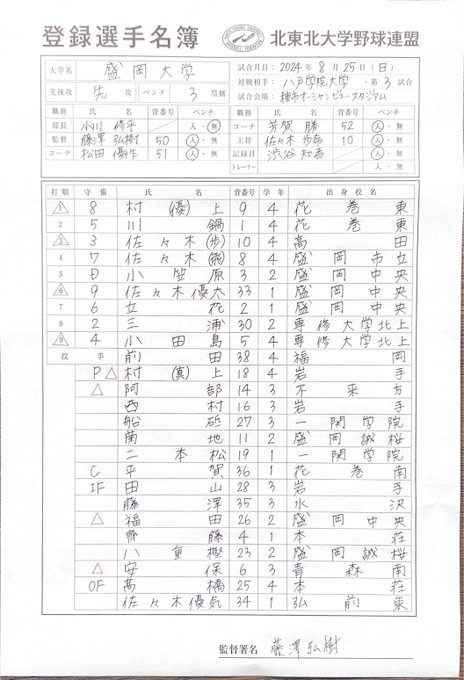 登録選手名簿 北東北大学野球連盟
大学名 盛岡大学 試合月日：2024年8月25日（日）
対戦相手：八戸学院大学・第3試合
先後攻 先攻 ベンチ 3塁側 試合会場：
職務 氏名 背番号 ベンチ 職務 氏名 背番号 ベンチ
部長 小川 修平 人・無 コーチ 芳賀 勝 52 人・無
監督 藤澤 弘樹 50 人・無 主将 佐々木 歩希 10 人・無
コーチ 松田 優作 51 人・無 記録員 渋谷 知香 人・無
トレーナー 人・無
打順 守備 氏名 背番号 学年 出身校名
1 8 村(優)上 9 4 花巻東
2 5 川鍋 1 4 花巻東
3 3 佐々木(歩) 10 4 高田
4 7 佐々木 8 4 盛岡市立
5 D 小笠原 3 2 盛岡中央
6 9 佐々木優太 33 1 盛岡中央
7 6 立花 2 1 盛岡中央
8 2 三浦 30 2 専修大学北上
9 4 小田島 5 4 専修大学北上
投手 前田 38 4 福岡
P △ 村(真)上 18 4 岩手
△ 阿部 14 3 不来方
西村 16 3 岩手
船砥 27 3 一関学院
菊地 11 2 盛岡誠桜
二本松 19 1 一関学院
C 平賀 36 1 花巻南
IF 田山 28 3 岩手
藤澤 35 3 水沢
△ 福田 26 2 盛岡中央
齊藤 4 1 本荘
八重樫 23 2 盛岡誠桜
△ 安保 6 3 青森南
OF 髙橋 25 4 本荘
佐々木優気 34 1 弘前東
監督署名 藤澤弘樹